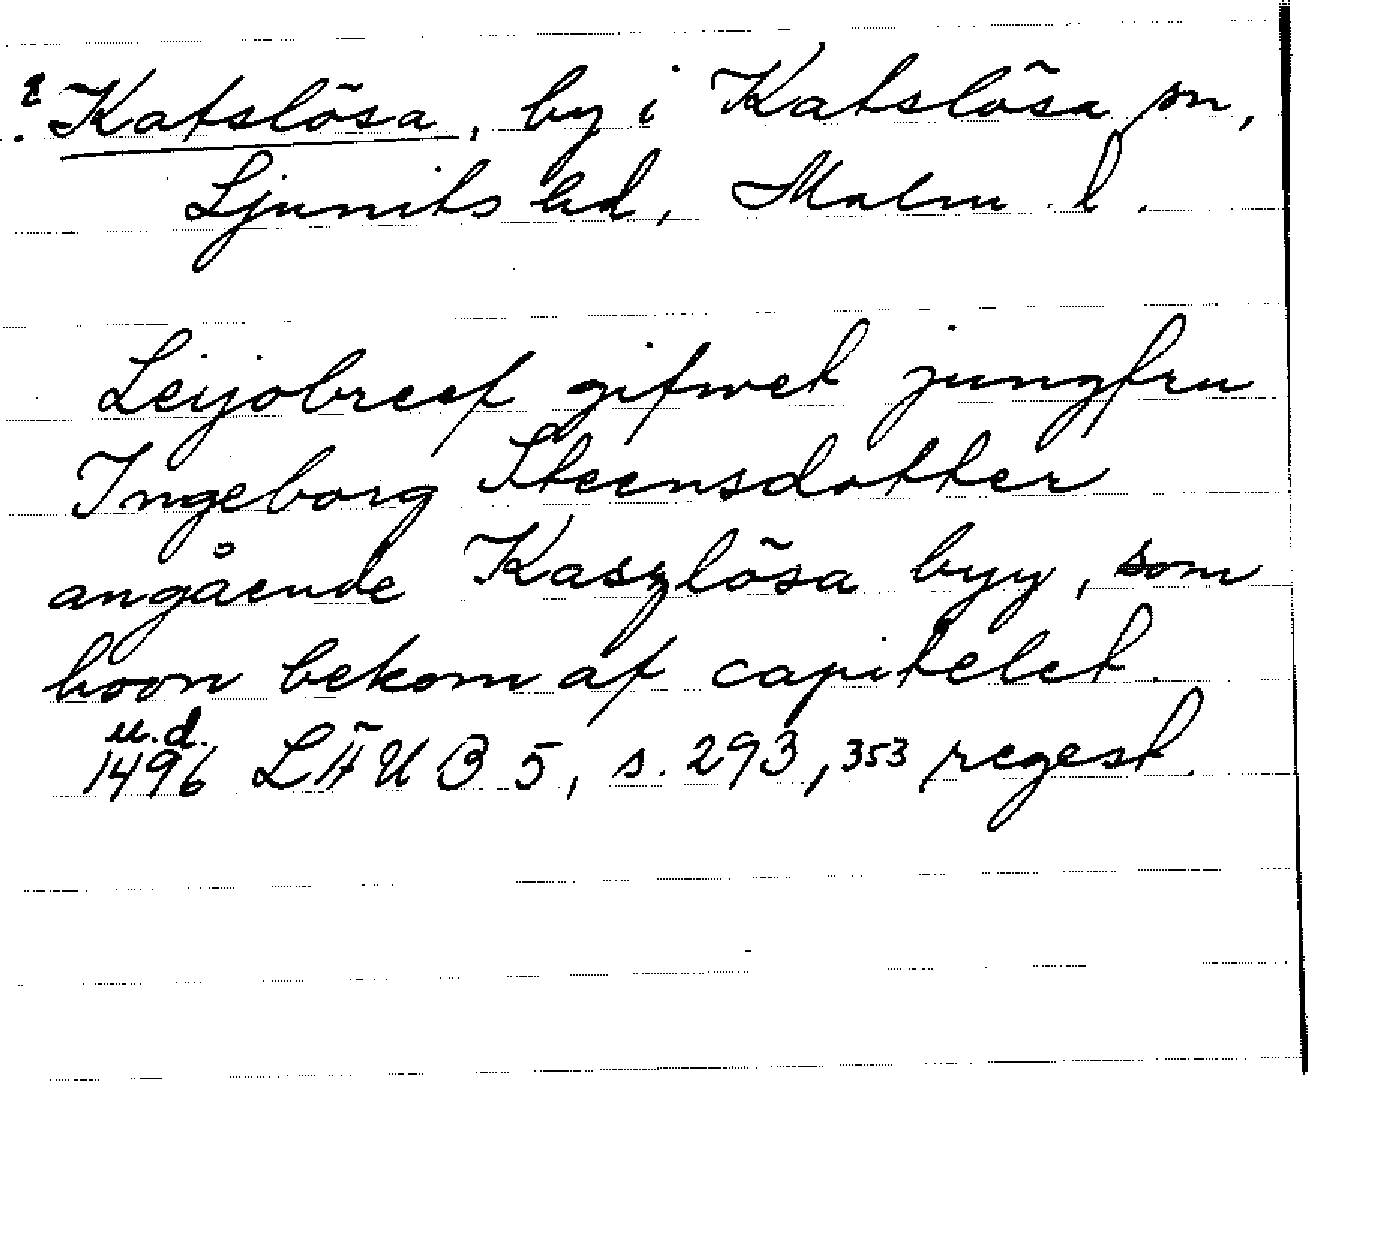 ? Katslösa, by i Katslösa sn,
Ljunits hd, Malm. l.
Leijobreef gifwet jungfru
Ingeborg Steensdotter
angående Kaszlösa byy, som
hoon bekom af capitelet.
u.d.
1496 LÄUB 5, s. 293, 353 regest.